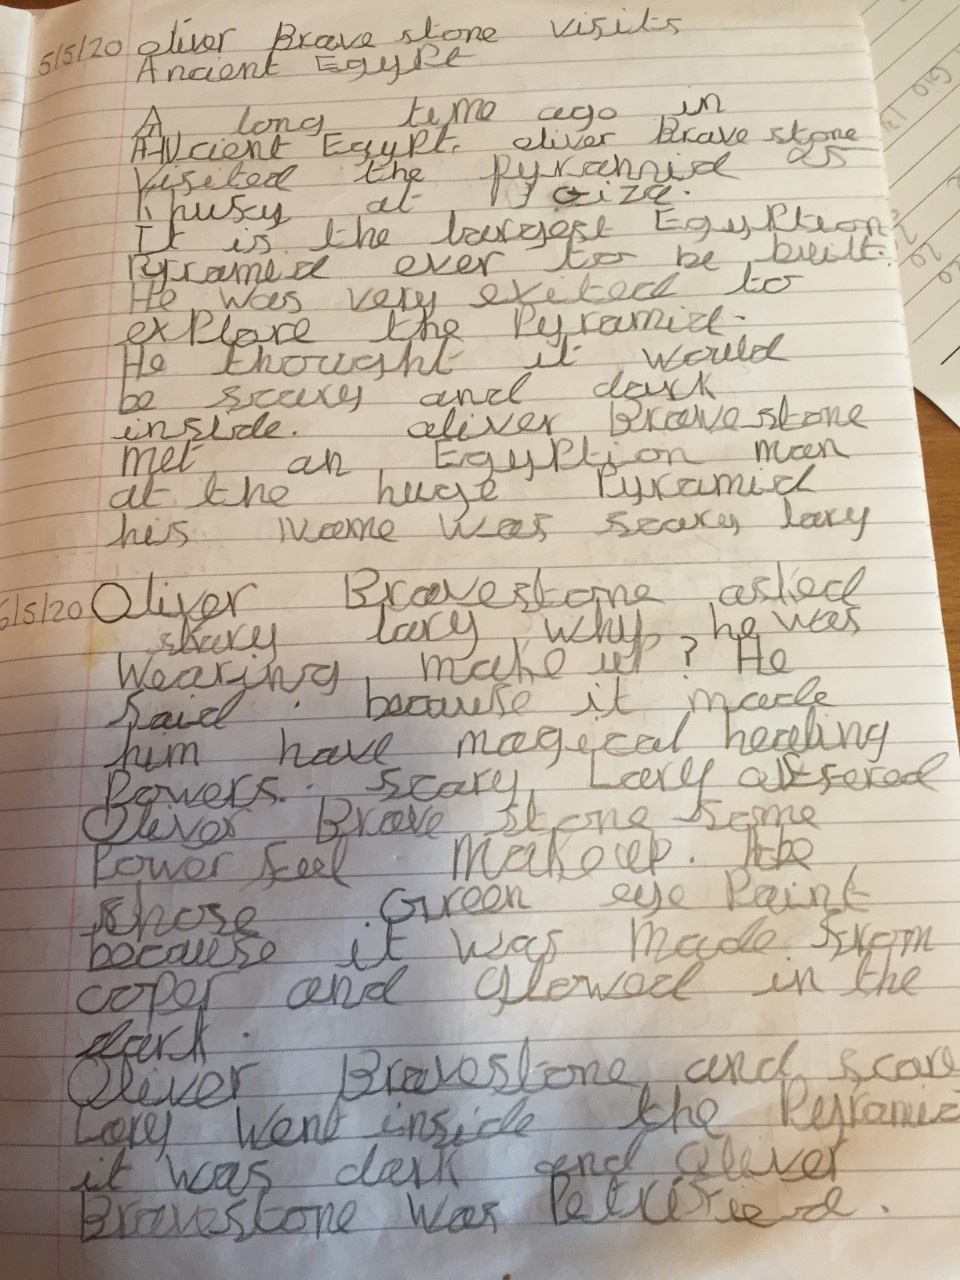 5/5/20 Oliver Brave stone visits
Ancient Egypt
A long time ago in
Ancient Egypt. Oliver Brave stone
visited the pyramid as
khufu at Giza.
It is the largest Egyption
Pyramid ever to be built.
He was very exited to
explore the Pyramid.
He thought it would
be scary and dark
inside. Oliver Bravestone
met an Egyption man
at the huge Pyramid
his name was scary lary
6/5/20 Oliver Bravestone asked
skary lary why he was
Wearing make up? He
said. because it made
him have magical healing
Powers. scary Lary
Oliver Brave stone some
Power feel Makeup. He
chose Green eye Paint
because it was Made from
coper and glowed in the
dark.
Oliver Bravestone and scare
Lary Went inside the Pyramid
it was dark and Oliver
Bravestone was Petrified.